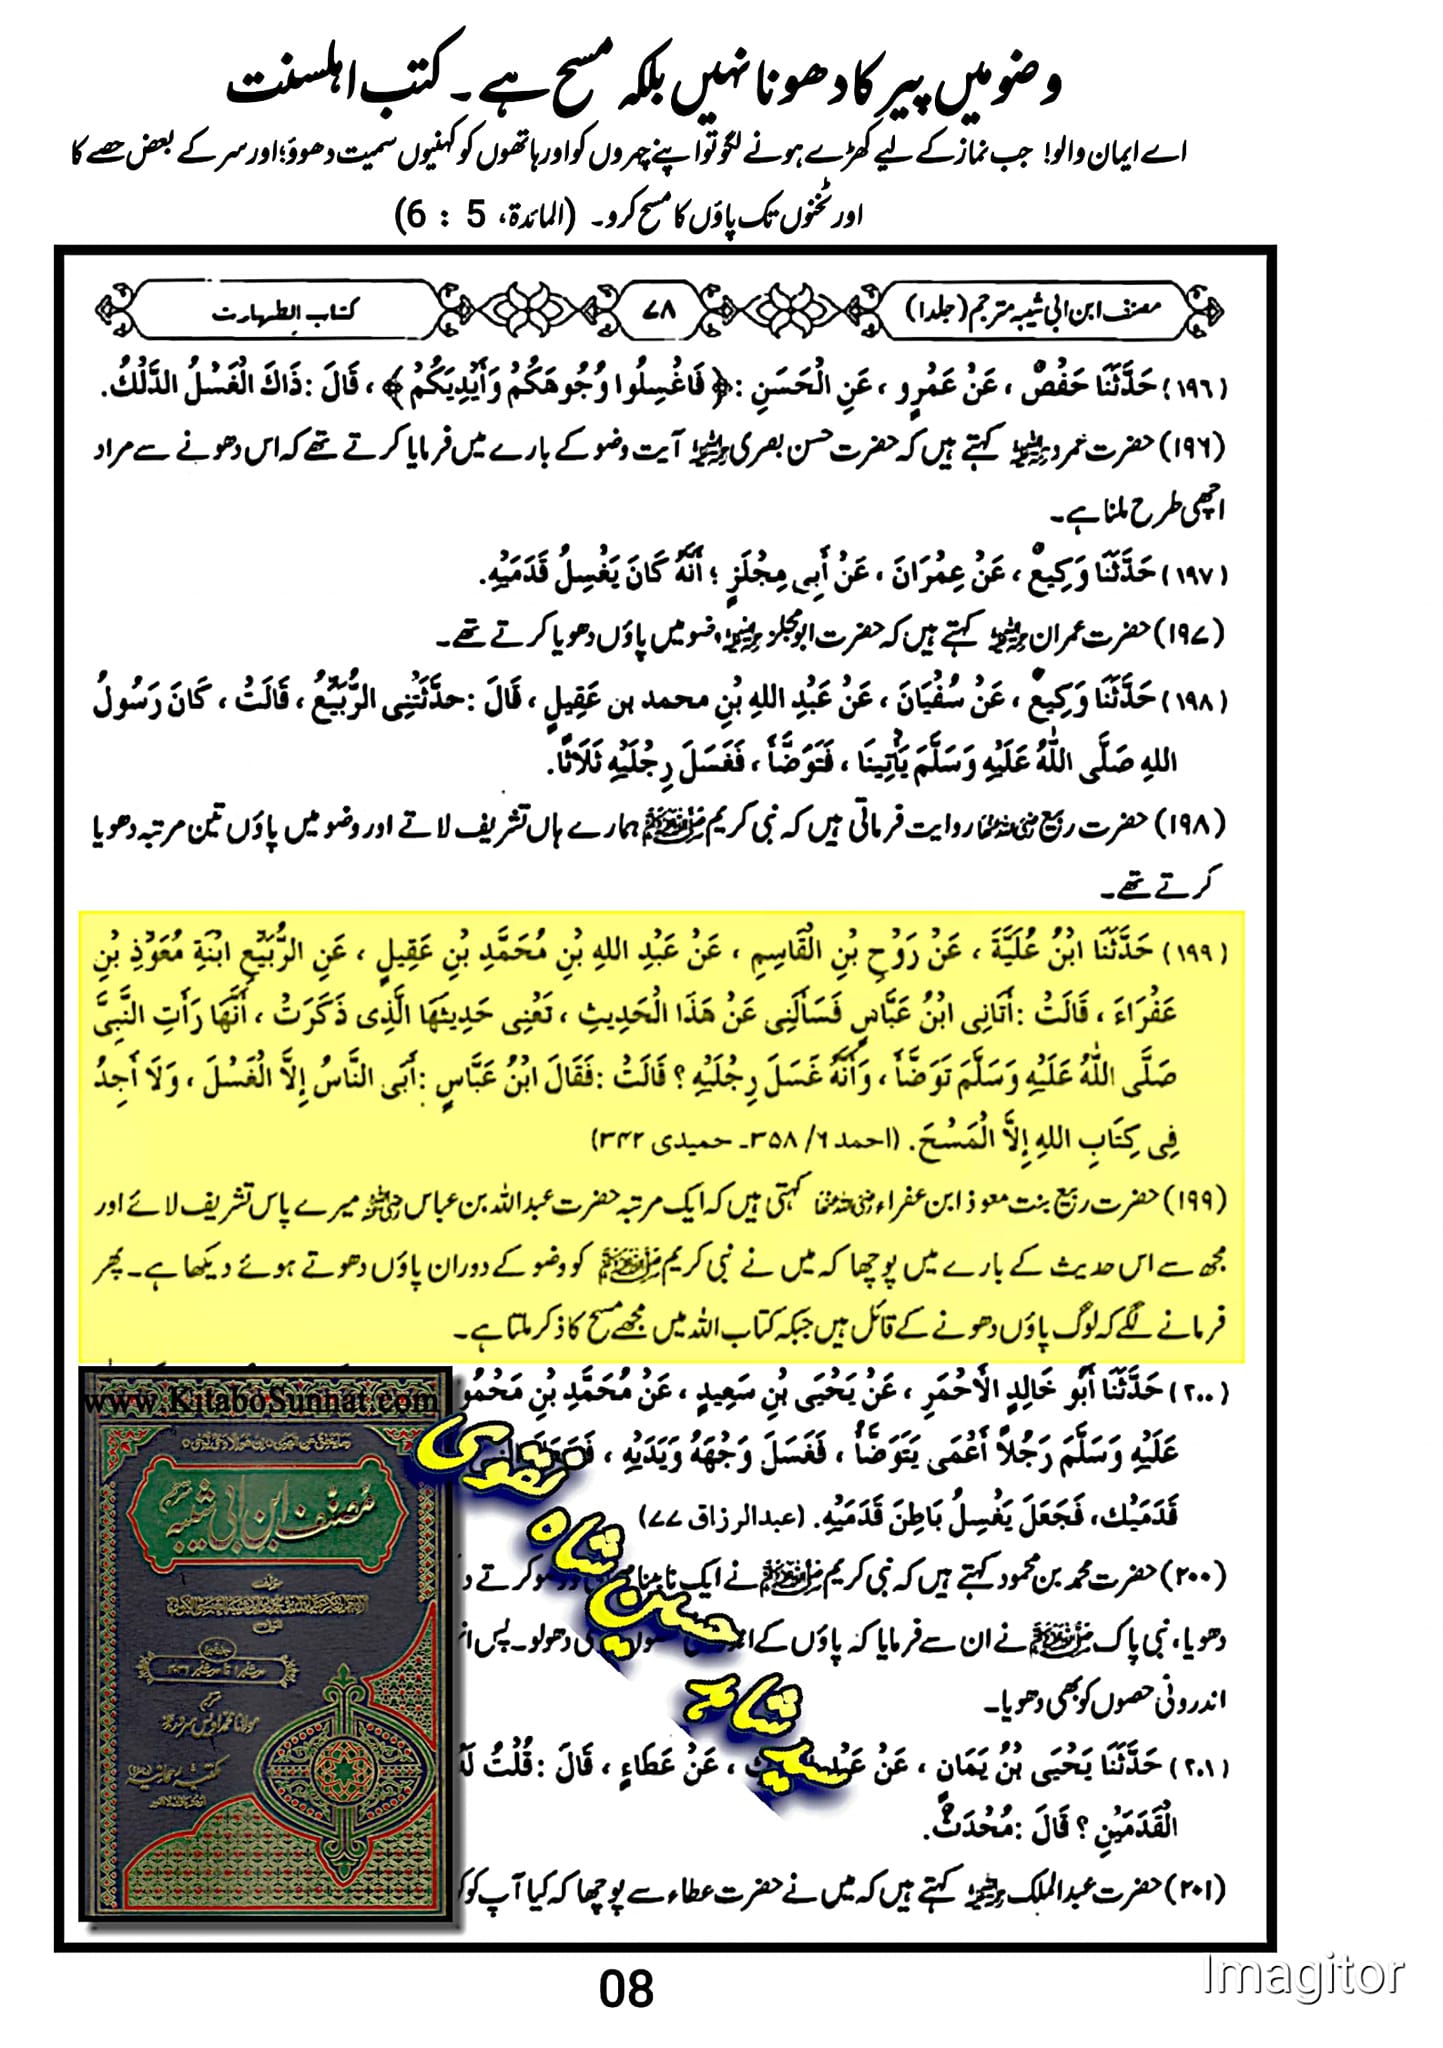 وضو میں پیر کا دھونا نہیں بلکہ مسح ہے۔ کتب اہلسنت
اے ایمان والو! جب نماز کے لیے کھڑے ہونے لگو تو اپنے چہروں کو اور ہاتھوں کو کہنیوں سمیت دھوؤ؛ اور سر کے بعض حصے کا
اور ٹخنوں تک پاؤں کا مسح کرو۔ (المائدۃ، 5 : 6)
مصنف ابن ابی شیبہ مترجم (جلد ۱)
۷۸
کتاب الطہارت
(۱۹۶) حَدَّثَنَا حَفْصٌ ، عَنْ عَمْرٍو ، عَنِ الْحَسَنِ :﴿ فَاغْسِلُوا وُجُوهَكُمْ وَأَيْدِيَكُمْ ﴾ ، قَالَ :ذَاكَ الْغَسْلُ الدَّلْكُ.
(۱۹۶) حضرت عمرو کہتے ہیں کہ حضرت حسن بصری آیت وضو کے بارے میں فرمایا کرتے تھے کہ اس دھونے سے مراد
اچھی طرح ملنا ہے۔
(۱۹۷) حَدَّثَنَا وَكِيعٌ ، عَنْ عِمْرَانَ ، عَنْ أَبِي مِجْلَزٍ ؛ أَنَّهُ كَانَ يَغْسِلُ قَدَمَيْهِ.
(۱۹۷) حضرت عمران کہتے ہیں کہ حضرت ابو مجلز وضو میں پاؤں دھویا کرتے تھے۔
(۱۹۸) حَدَّثَنَا وَكِيعٌ ، عَنْ سُفْيَانَ ، عَنْ عَبْدِ اللهِ بْنِ محمد بن عَقِيلٍ ، قَالَ :حدَّثَتْنِي الرُّبَيِّعُ ، قَالَتْ ، كَانَ رَسُولُ
اللهِ صَلَّى اللَّهُ عَلَيْهِ وَسَلَّمَ يَأْتِينَا ، فَتَوَضَّأَ ، فَغَسَلَ رِجْلَيْهِ ثَلَاثًا.
(۱۹۸) حضرت ربیع روایت فرماتی ہیں کہ نبی کریم ﷺ ہمارے ہاں تشریف لاتے اور وضو میں پاؤں تین مرتبہ دھویا
کرتے تھے۔
(۱۹۹) حَدَّثَنَا ابْنُ عُلَيَّةَ ، عَنْ رَوْحِ بْنِ الْقَاسِمِ ، عَنْ عَبْدِ اللهِ بْنِ مُحَمَّدِ بْنِ عَقِيلٍ ، عَنِ الرُّبَيِّعِ ابْنَةِ مُعَوِّذِ بْنِ
عَفْرَاءَ ، قَالَتْ :أَتَانِي ابْنُ عَبَّاسٍ فَسَأَلَنِي عَنْ هَذَا الْحَدِيثِ ، تَعْنِي حَدِيثَهَا الَّذِي ذَكَرَتْ ، أَنَّهَا رَأَتِ النَّبِيَّ
صَلَّى اللَّهُ عَلَيْهِ وَسَلَّمَ تَوَضَّأَ ، وَأَنَّهُ غَسَلَ رِجْلَيْهِ ؟ قَالَتْ :فَقَالَ ابْنُ عَبَّاسٍ :أَبَى النَّاسُ إِلَّا الْغَسْلَ ، وَلَا أَجِدُ
فِي كِتَابِ اللهِ إِلَّا الْمَسْحَ. (احمد ۶/ ۳۵۸۔ حمیدی ۳۴۲)
(۱۹۹) حضرت ربیع بنت معوذ ابن عفراء کہتی ہیں کہ ایک مرتبہ حضرت عبداللہ بن عباس میرے پاس تشریف لائے اور
مجھ سے اس حدیث کے بارے میں پوچھا کہ میں نے نبی کریم ﷺ کو وضو کے دوران پاؤں دھوتے ہوئے دیکھا ہے۔ پھر
فرمانے لگے کہ لوگ پاؤں دھونے کے قائل ہیں جبکہ کتاب اللہ میں مجھے مسح کا ذکر ملتا ہے۔
(۲۰۰) حَدَّثَنَا أَبُو خَالِدٍ الْأَحْمَرِ ، عَنْ يَحْيَى بْنِ سَعِيدٍ ، عَنْ مُحَمَّدِ بْنِ
عَلَيْهِ وَسَلَّمَ رَجُلًا أَعْمَى يَتَوَضَّأُ ، فَغَسَلَ وَجْهَهُ وَيَدَيْهِ ،
قَدَمَيْكَ، فَجَعَلَ يَغْسِلُ بَاطِنَ قَدَمَيْهِ. (عبدالرزاق ۷۷)
(۲۰۰) حضرت محمد بن محمود کہتے ہیں کہ نبی کریم ﷺ نے ایک نابینا کرتے
دھویا، نبی پاک ﷺ نے ان سے فرمایا کہ پاؤں کے دھولو۔ پس
اندرونی حصوں کو بھی دھویا۔
(۲۰۱) حَدَّثَنَا يَحْيَى بْنُ يَمَانٍ ، عَنْ ، عَنْ عَطَاءٍ ، قَالَ :قُلْتُ
الْقَدَمَيْنِ ؟ قَالَ :مُحْدَثٌ.
(۲۰۱) حضرت عبدالملک کہتے ہیں کہ میں نے حضرت عطاء سے پوچھا کہ کیا آپ کو
www.KitaboSunnat.com
مصنف ابن ابی شیبہ
مترجم
سید شاہد حسین شاہ نقوی
08
Imagitor